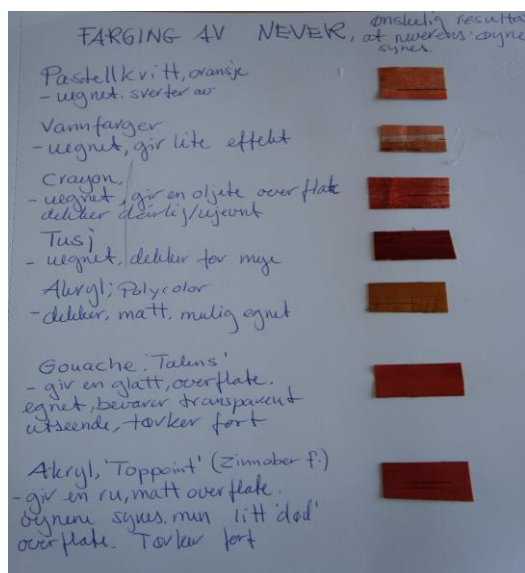 FARGING AV NEVER, ønskelig resultat
at neverens øyne
synes.
Pastellkritt, oransje
- uegnet. sverter av
Vannfarger
- uegnet, gir lite effekt
Crayon,
- uegnet, gir en oljete overflate
dekker dårlig/ujevnt
Tusj
- uegnet, dekker for mye
Akryl; Polycolor
- dekker, matt, mulig egnet
Gouache 'Talens'
- gir en glatt, overflate.
egnet, bevarer transparent
utseende, tørker fort
Akryl, 'Toppoint' (Zinnober f.)
- gir en ru, matt overflate.
øynene synes. men litt 'død'
overflate. Tørker fort